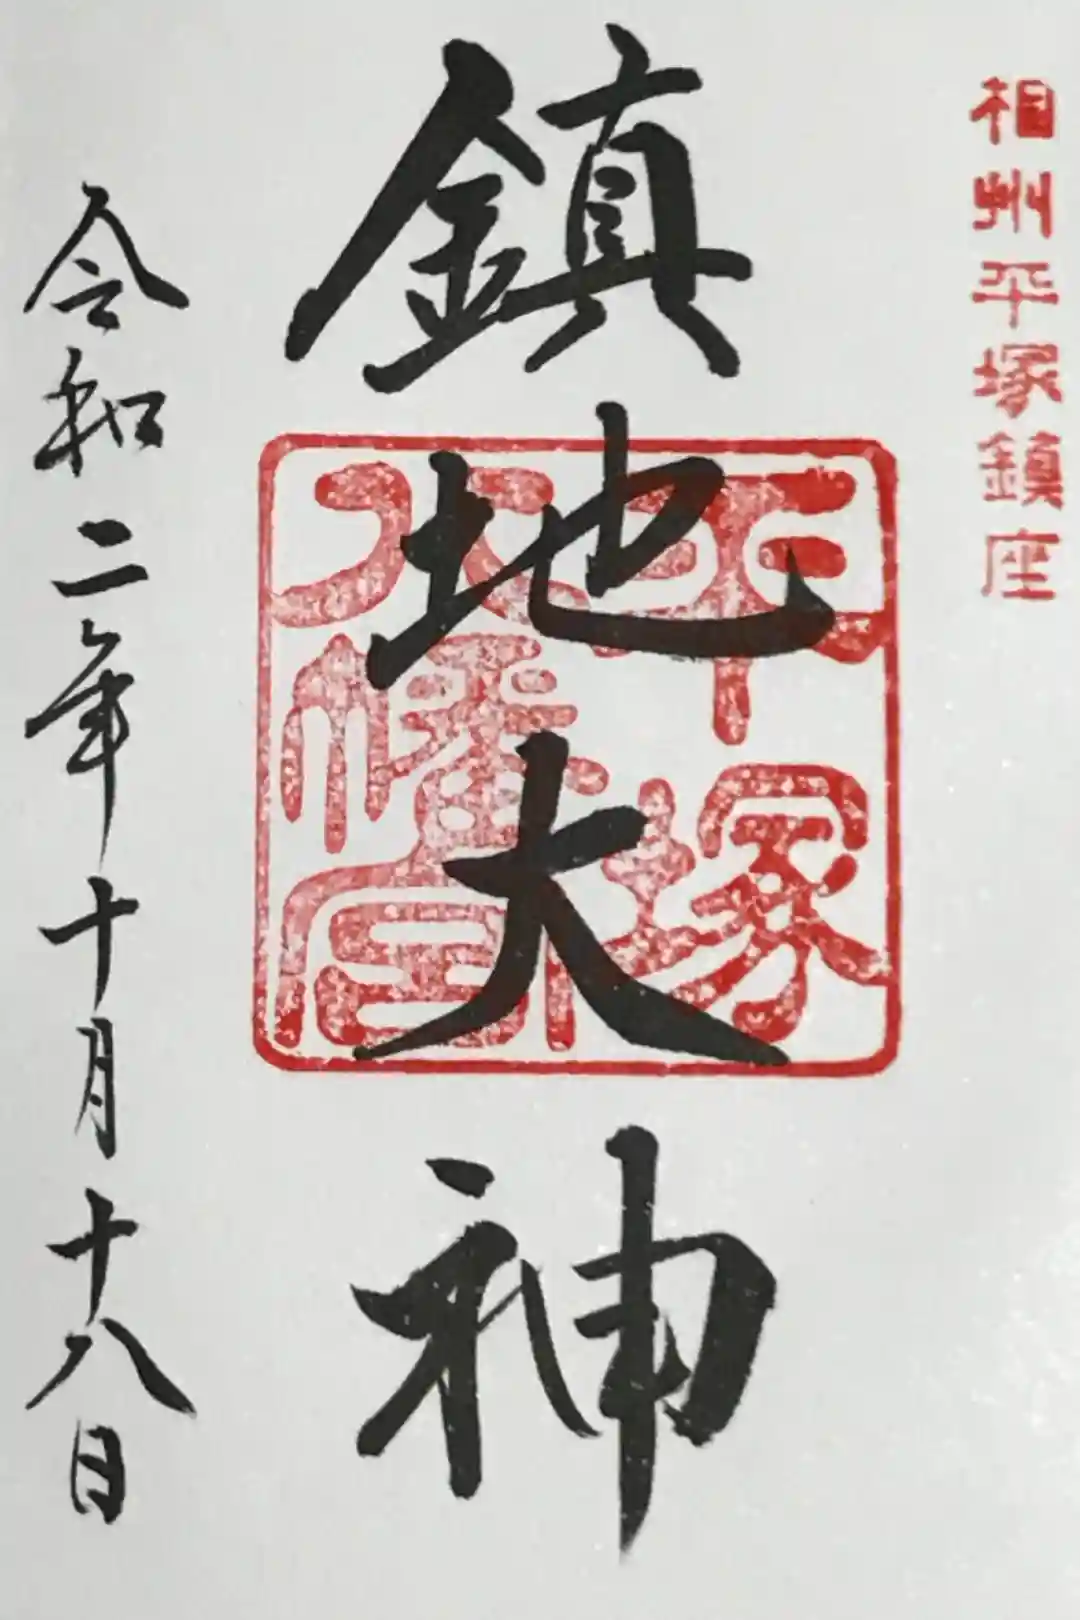 相州平塚鎮座
鎮地大神
平塚
八幡宮
令和二年十月十八日